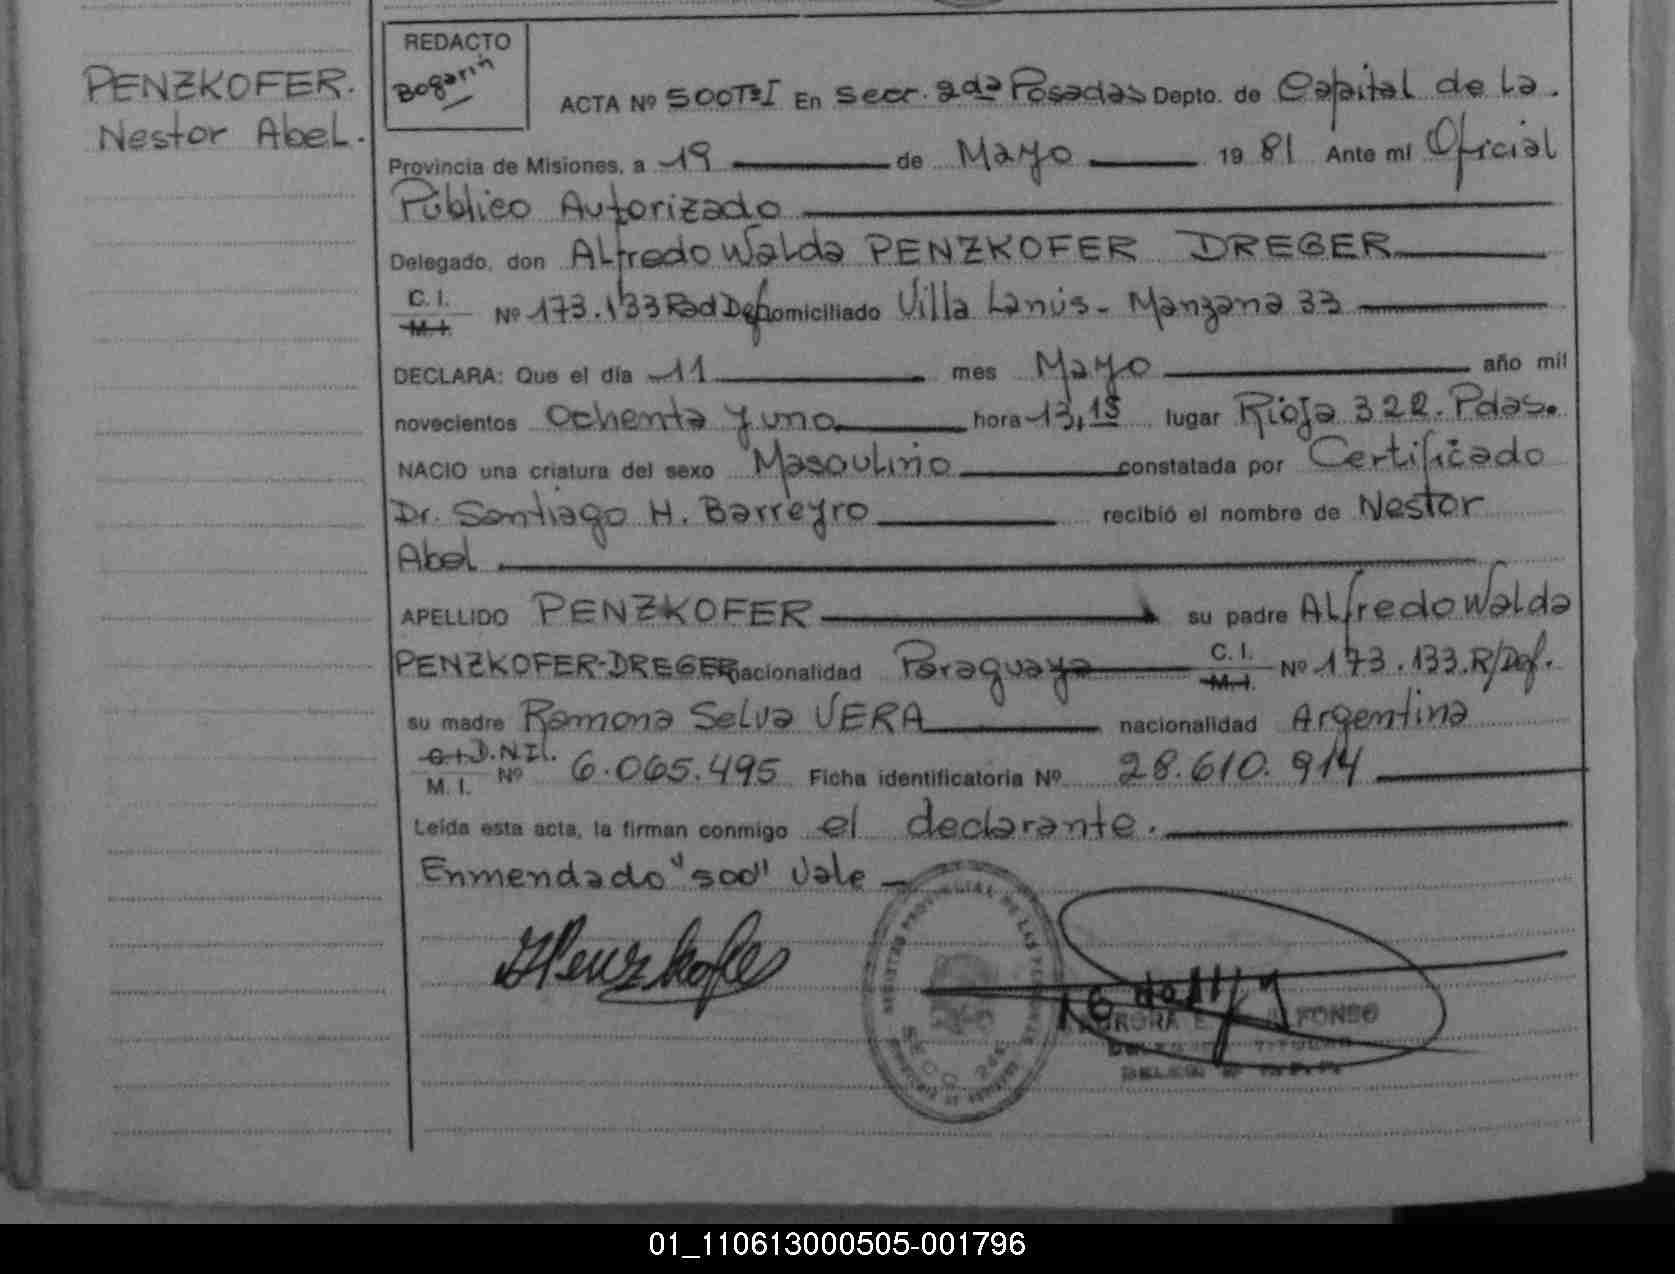 PENZKOFER.
Nestor Abel.
REDACTO
Bogarin
ACTA Nº 500TºI En Secr. 2da Posadas Depto. de Capital de La.
Provincia de Misiones, a 19 de Mayo 19 81 Ante mi Oficial
Público Autorizado
Delegado, don ALfredo Walda PENZKOFER DREGER
C. I.
M. I.
Nº 173.133 Rad Def domiciliado Villa Lanús - Manzana 33
DECLARA: Que el día 11 mes Mayo año mil
novecientos Ochenta y uno hora 13,15 lugar Rioja 322. Pdas.
NACIO una criatura del sexo Masculino constatada por Certificado
Dr. Santiago H. Barreyro recibió el nombre de Nestor
Abel
APELLIDO PENZKOFER su padre ALfredo Walda
PENZKOFER-DREGER nacionalidad Paraguaya C. I. M. I. Nº 173.133.R/Def.
su madre Ramona Selva VERA nacionalidad Argentina
C. I. D.N.I.
M. I. Nº 6.065.495 Ficha identificatoria Nº 28.610.914
Leída esta acta, la firman conmigo el declarante.
Enmendado "500" Vale
Penzkofer
REGISTRO PROVINCIAL DE LAS PERSONAS
SECC. 2da
FONSO
01_110613000505-001796